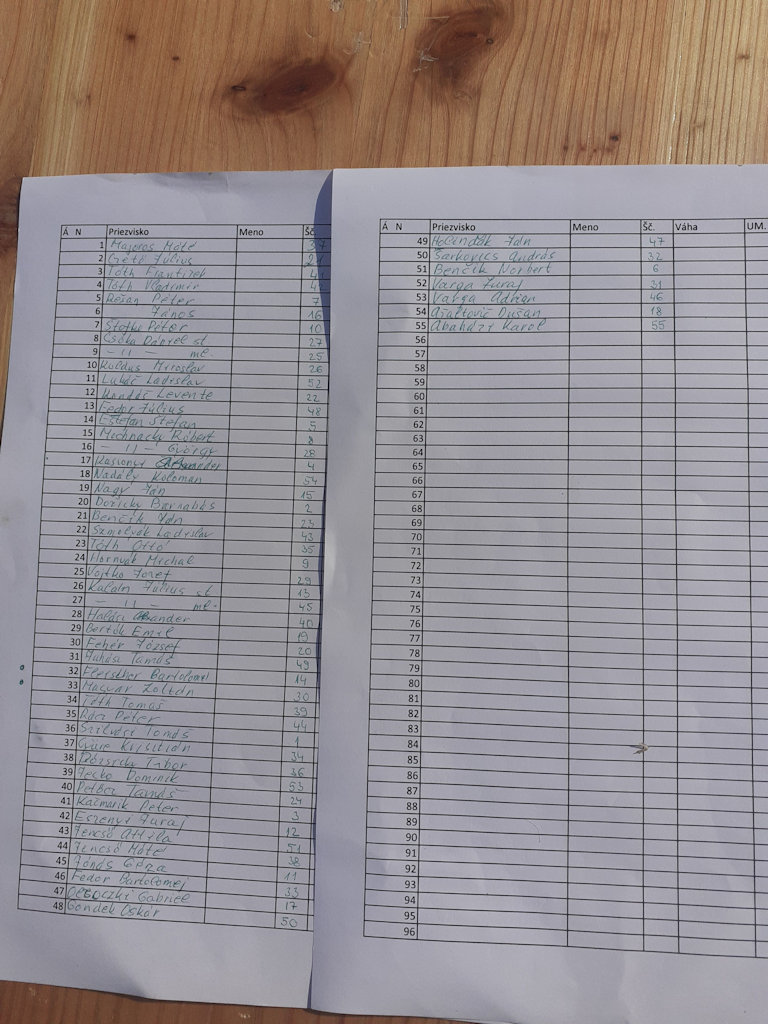 Á N Priezvisko Meno Šč.
1 Majoros Máté 37
2 Július 21
3 Tóth František 41
4 Tóth Vladimír 42
5 Péter 7
6 János 16
7 Péter 10
8 Csóka Dániel st. 27
9 - 11 - ml. 25
10 Kuldus Miroslav 26
11 Lukáč Ladislav 52
12 Levente 22
13 Fedor Július 48
14 Estefan Štefan 5
15 Michnacky Róbert 8
16 - 11 - György 28
17 4
18 Nadály Koloman 54
19 Nagy Ján 15
20 Barnabás 2
21 Benčík Ján 23
22 Szmolyák Ladislav 43
23 Tóth Ottó 35
24 Hornyák Michal 9
25 Vojtko Jozef 29
26 Július st. 13
27 - 11 - ml. 45
28 Halász 40
29 Bertók Emil 19
30 Fehér József 20
31 Juhász Tamás 49
32 Bartolomej 14
33 Magyar Zoltán 30
34 Tóth Tomáš 39
35 Rácz Péter 44
36 Szilvási 1
37 34
38 Tibor 36
39 Jecko Dominik 53
40 24
41 Kačmarik Péter 3
42 Eszenyi Juraj 12
43 Jencső Attila 51
44 Jencső Máté 38
45 Jónás Géza 11
46 Fedor Bartolomej 33
47 Gabriel 17
48 Gondek Oskár 50
Á N Priezvisko Meno Šč. Váha UM.
49 Ján 47
50 Šarkovics András 32
51 Benčík Norbert 6
52 Varga Juraj 31
53 Varga Adrian 46
54 Dušan 18
55 Abaházi Karol 55
56
57
58
59
60
61
62
63
64
65
66
67
68
69
70
71
72
73
74
75
76
77
78
79
80
81
82
83
84
85
86
87
88
89
90
91
92
93
94
95
96